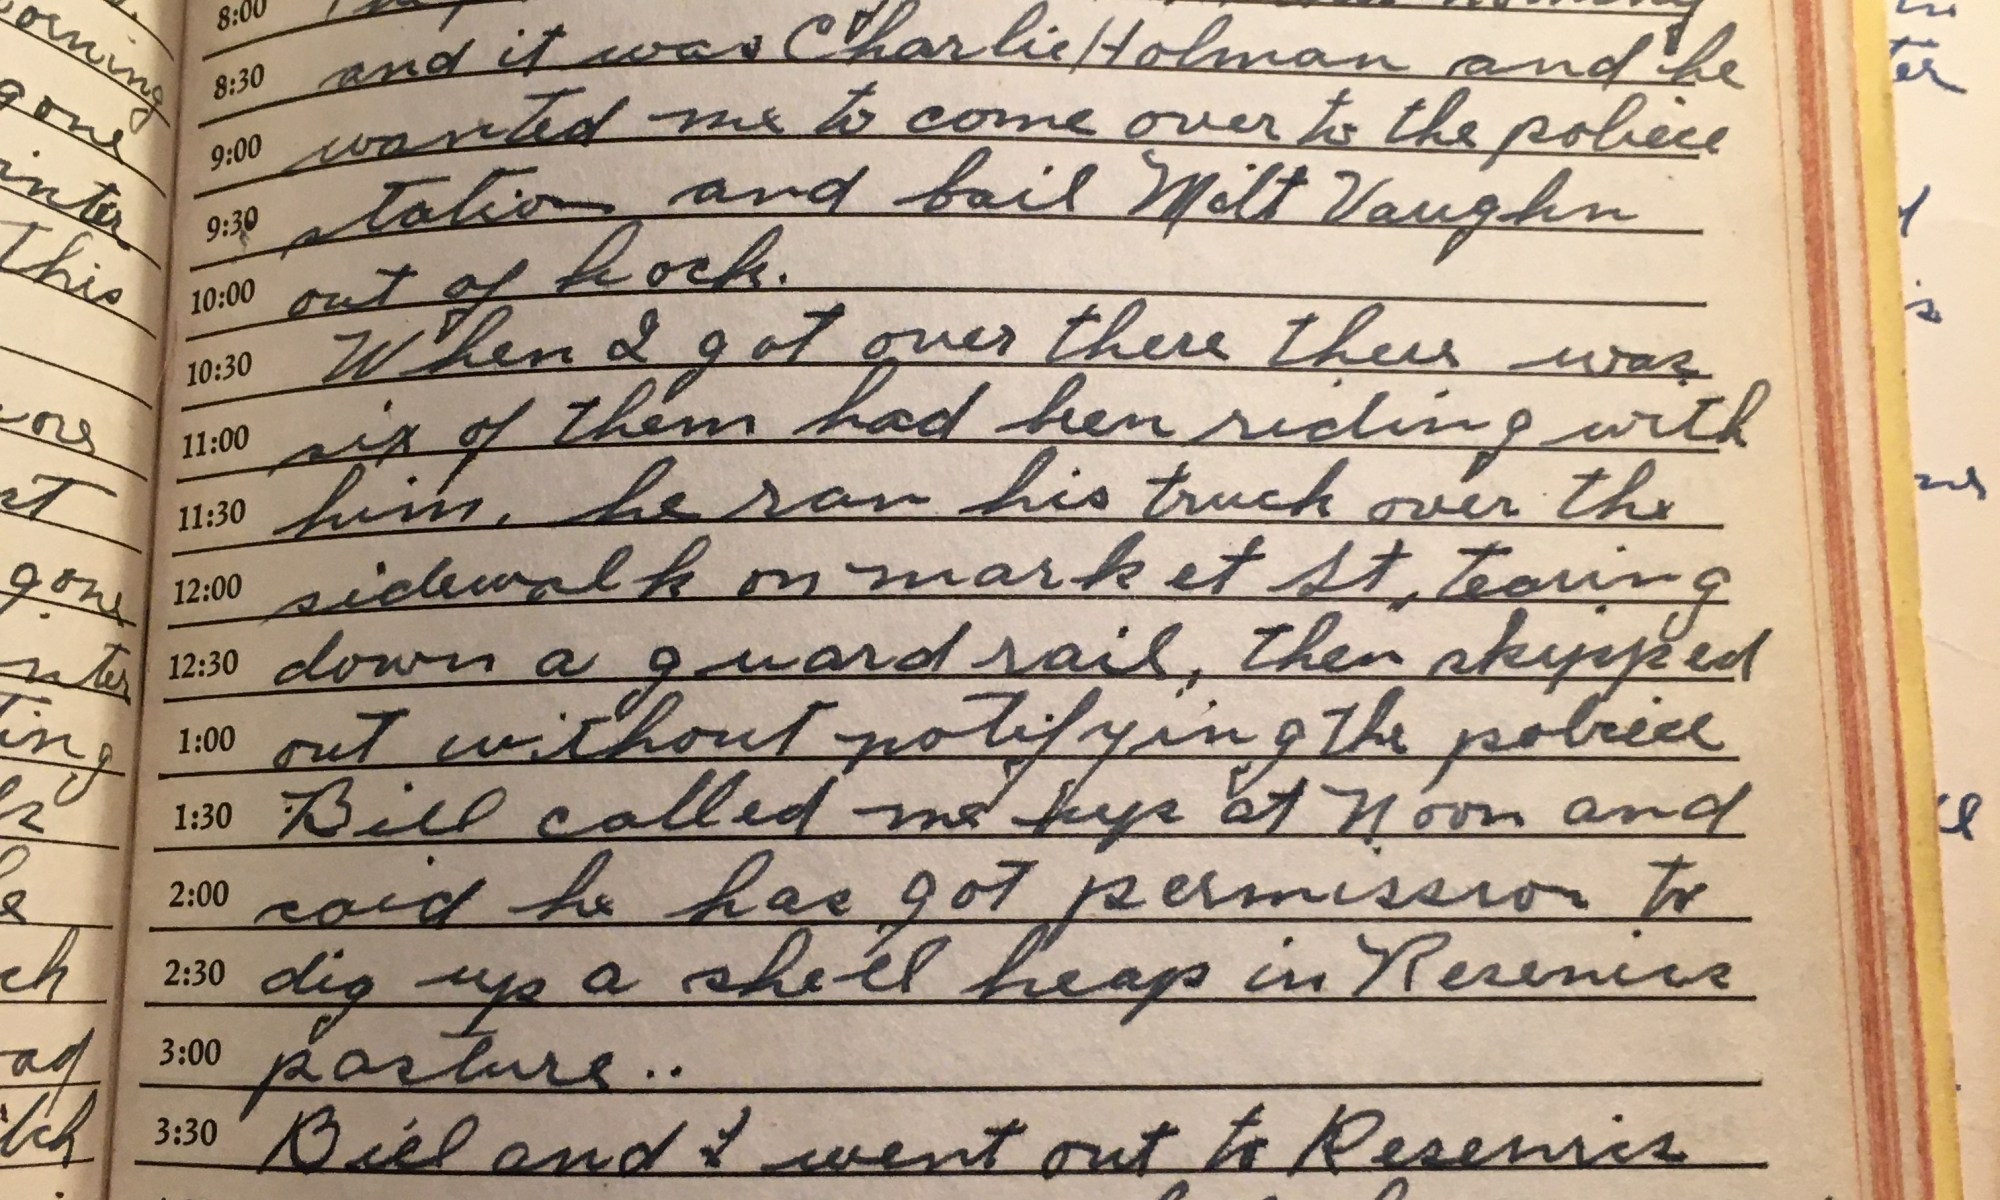 orning
gone
inter
This
ore
st
gone
nter
ting
ch
8:00
8:30 and it was Charlie Holman and he
9:00 wanted me to come over to the poliece
9:30 station and bail Milt Vaughn
10:00 out of hock.
10:30 When I got over there there was
11:00 six of them had ben riding with
11:30 him. he ran his truck over the
12:00 sidewalk on market St, tearing
12:30 down a guard rail, then skipped
1:00 out without notifying the poliece
1:30 Bill called me up at Noon and
2:00 said he has got permission to
2:30 dig up a shell heap in
3:00 pasture..
3:30 Bill and I went out to